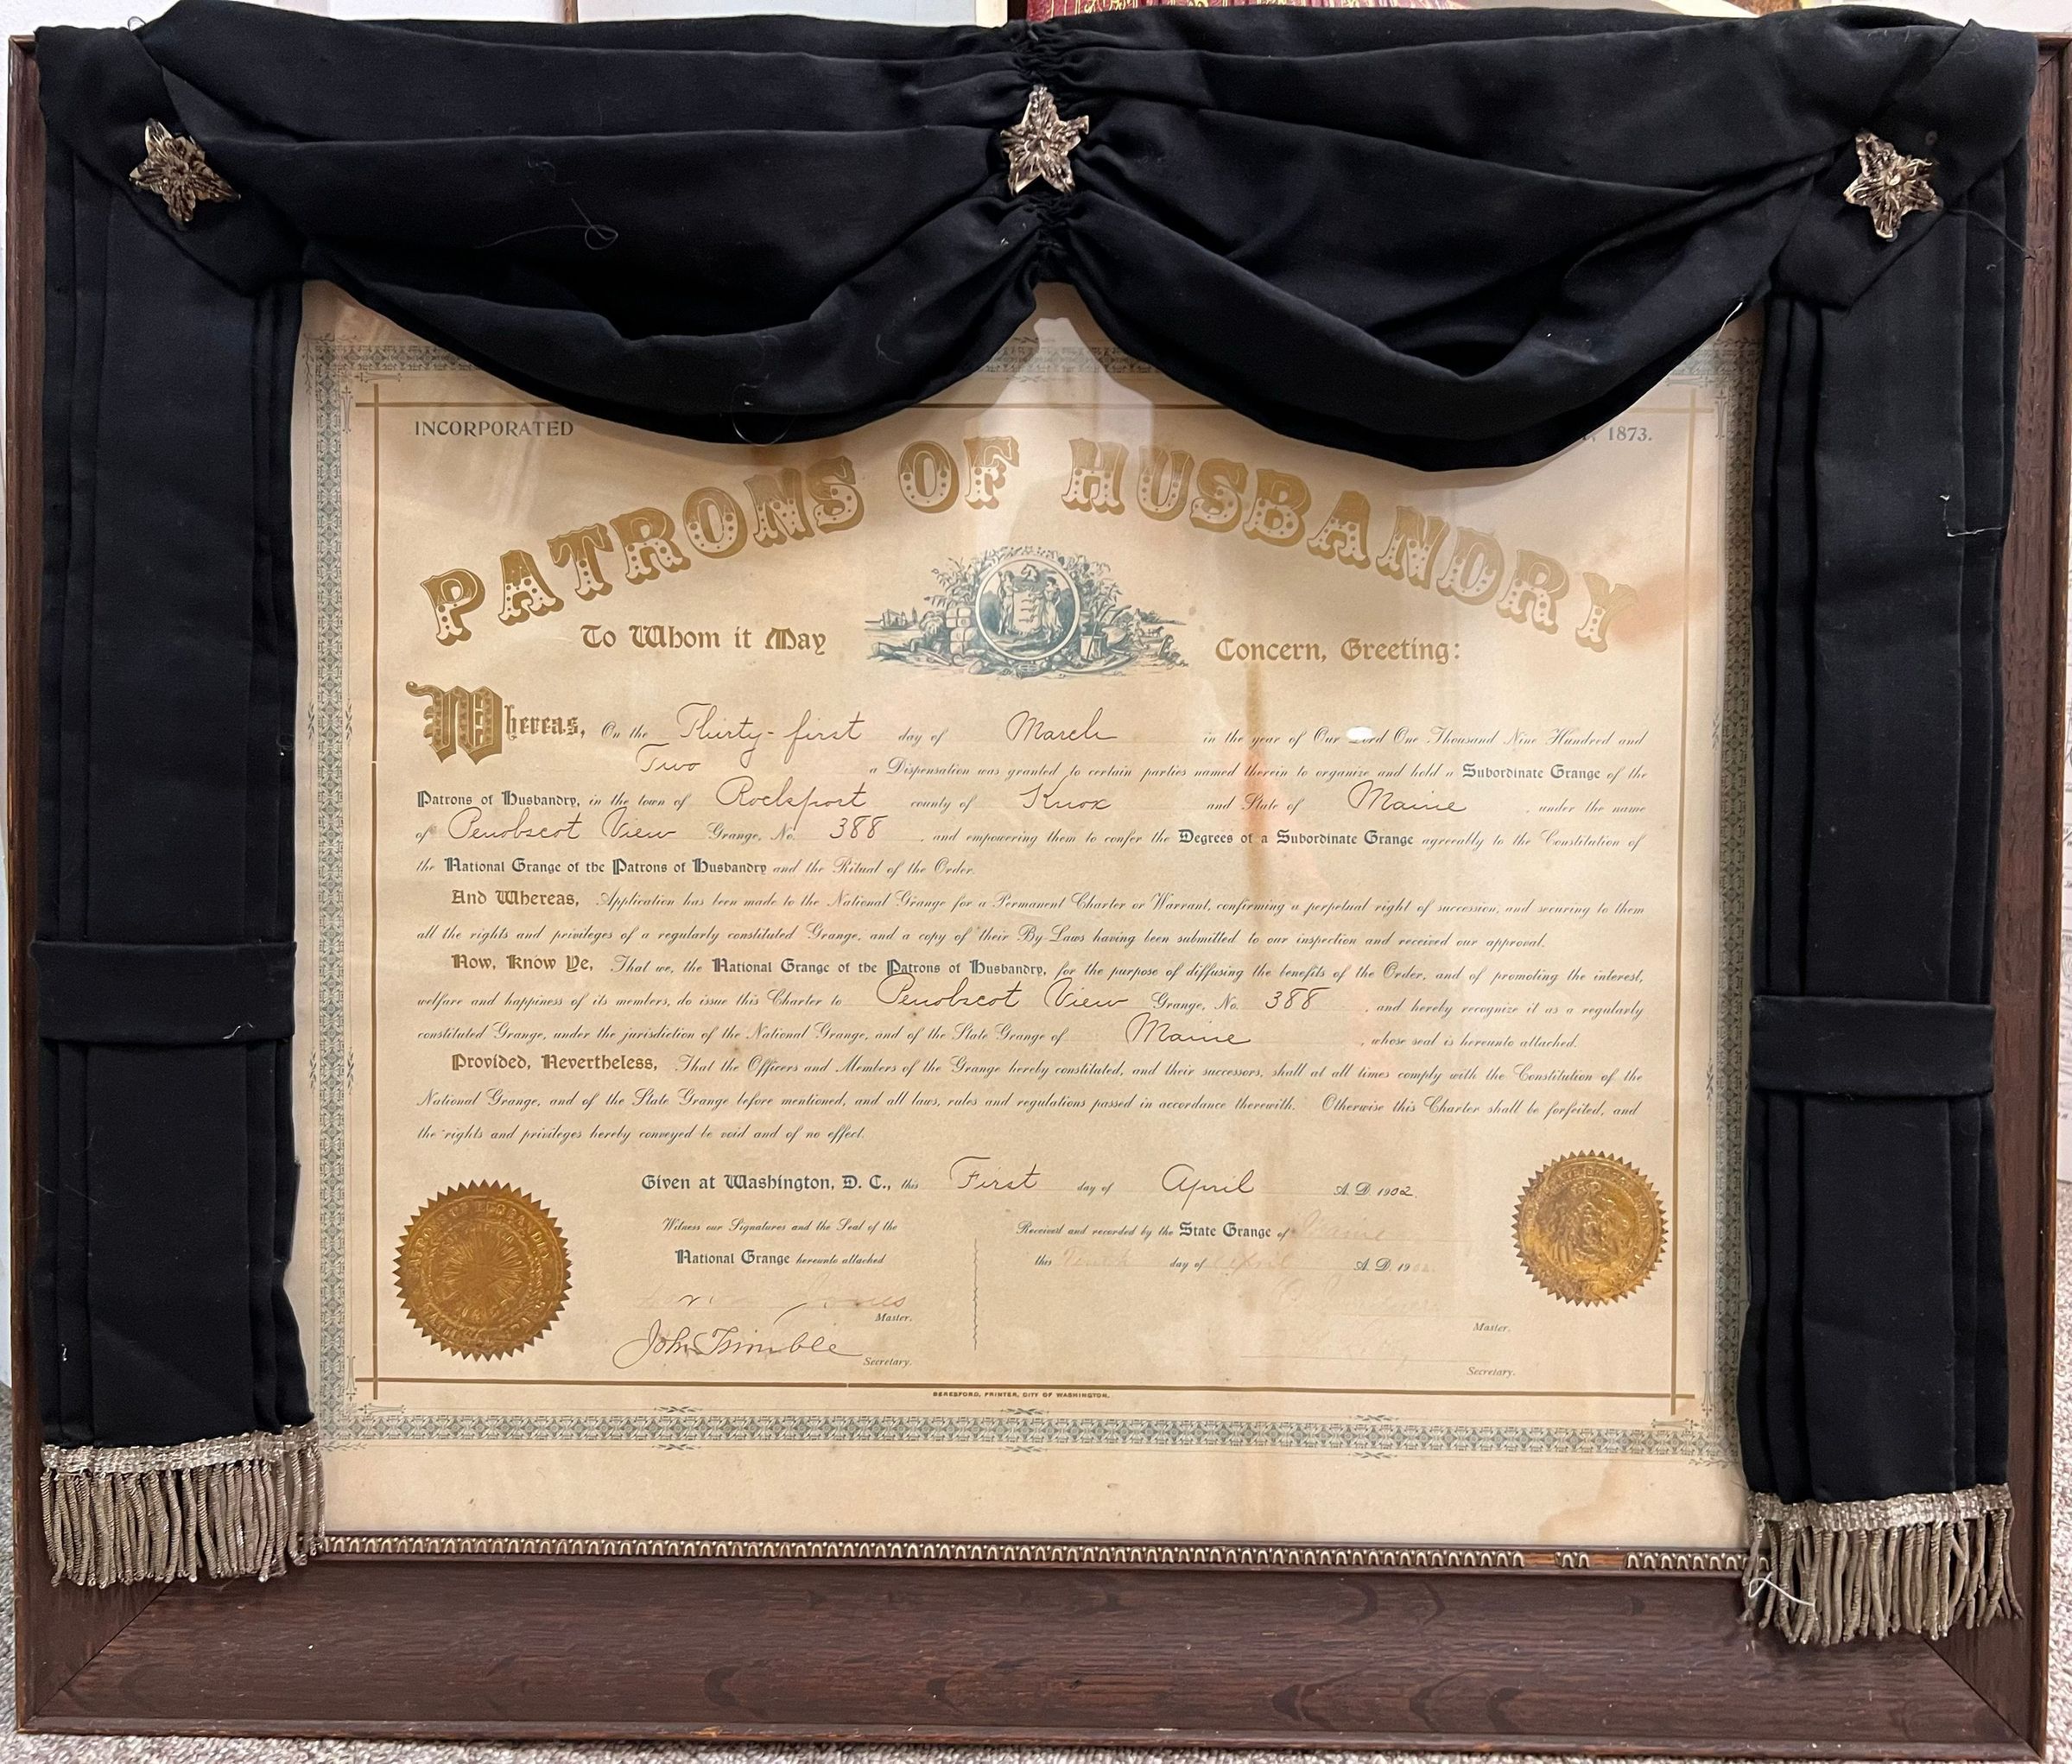 INCORPORATED 1873.
PATRONS OF HUSBANDRY
To Whom it May Concern, Greeting:
Whereas, On the Thirty-first day of March in the year of Our Lord One Thousand Nine Hundred and
Two a Dispensation was granted to certain parties named therein to organize and hold a Subordinate Grange of the
Patrons of Husbandry, in the town of Rockport county of Knox and State of Maine under the name
of Penobscot View Grange, No. 388, and empowering them to confer the Degrees of a Subordinate Grange agreeably to the Constitution of
the National Grange of the Patrons of Husbandry and the Ritual of the Order.
And Whereas, Application has been made to the National Grange for a Permanent Charter or Warrant, confirming a perpetual right of succession, and securing to them
all the rights and privileges of a regularly constituted Grange, and a copy of their By-Laws having been submitted to our inspection and received our approval.
Now, Know Ye, That we, the National Grange of the Patrons of Husbandry, for the purpose of diffusing the benefits of the Order, and of promoting the interest,
welfare and happiness of its members, do issue this Charter to Penobscot View Grange, No. 388, and hereby recognize it as a regularly
constituted Grange, under the jurisdiction of the National Grange, and of the State Grange of Maine, whose seal is hereunto attached.
Provided, Nevertheless, That the Officers and Members of the Grange hereby constituted, and their successors, shall at all times comply with the Constitution of the
National Grange, and of the State Grange before mentioned, and all laws, rules and regulations passed in accordance therewith. Otherwise this Charter shall be forfeited, and
the rights and privileges hereby conveyed be void and of no effect.
Given at Washington, D. C., this First day of April A. D. 1902.
Witness our Signatures and the Seal of the
National Grange hereunto attached
Jones
Master.
John Trimble
Secretary.
Received and recorded by the State Grange of Maine
this Tenth day of April A. D. 190
Master.
Secretary.
BERESFORD, PRINTER, CITY OF WASHINGTON.